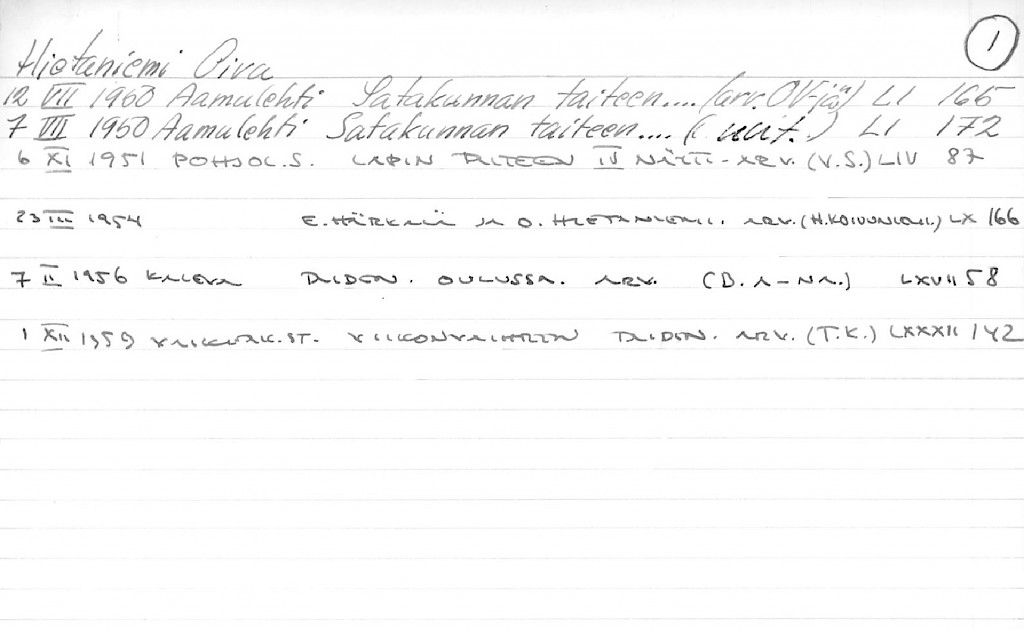 1
Hietaniemi Oiva
12 VII 1950 Aamulehti Satakunnan taiteen.... (arv. OV-jä) LI 165
7 VII 1950 Aamulehti Satakunnan taiteen.... ( uut.) LI 172
6 XI 1951 POHJOL.S. LAPIN TAITEEN IV NÄYTT-ARV. (V.S.) LIV 87
23 III 1954 E. HÄRKMÄ JA O. HIETANIEMI. ARV. (H.KOIVUNIEMI.) LX 166
7 II 1956 KALEVA TAIDEN. OULUSSA. ARV. (D. A-NA.) LXVII 58
1 XII 1959 VIIKONVAIHTEEN TAIDEN. ARV. (T.K.) LXXXII 142